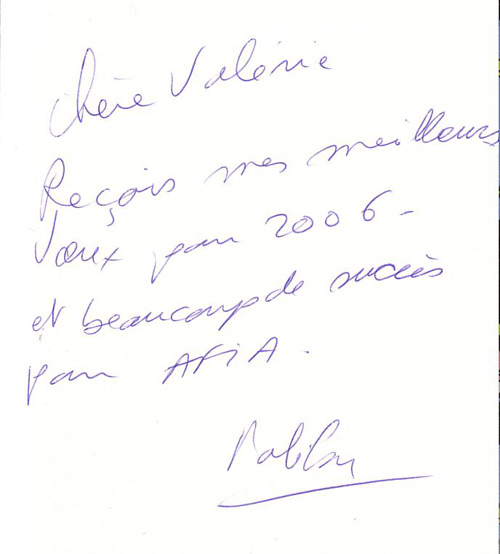 Chère Valérie
Reçois mes meilleurs
Vœux pour 2006 -
et beaucoup de succès
pour AFiA.